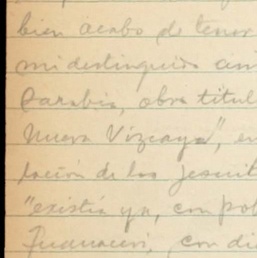 bien acabo de tener
mi distinguido ami
Sarabia, obra titul
Nueva Vizcaya", en
lación de los jesuit
"existía ya, con pob
con di